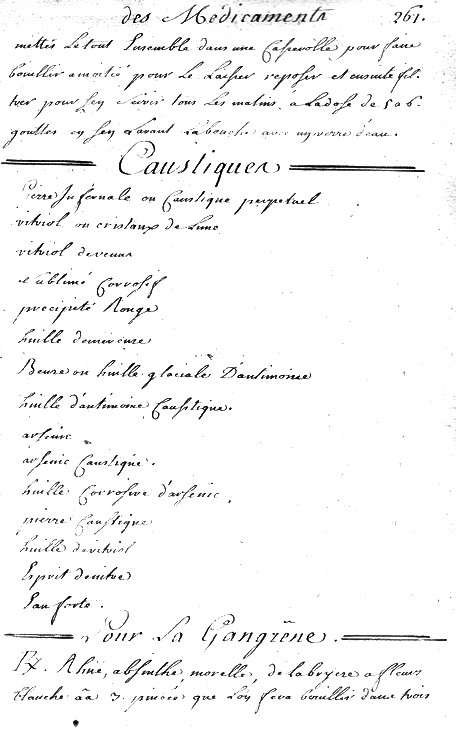 des Médicaments 261.
mettés Le tout Ensemble dans une Casserolle pour faire
bouillir a moitié pour Le Laisser reposer et ensuite fil-
trer pour sen servir tous Les matins a La dose de 5 a 6.
gouttes en sen Lavant La bouche avec un verre deau.
Caustiques
Pierre Infernale ou Caustique perpetuel
vitriol ou cristaux de Lune
vitriol devenus
sublimé Corrosif
précipité Rouge
huille demercure
Beure ou huille glaciale D'antimoine
huille d'antimoine Caustique.
arsenic
arsenic Caustique.
huille Corrosive d'arsenic.
pierre Caustique
huille devitriol
Esprit denitre
Eau forte.
Pour La Gangrêne.
R. Rhue, absinthe, morelle, de La bryere a fleurs
blanche ãa 3. pincée que Lon fera bouillir dans trois